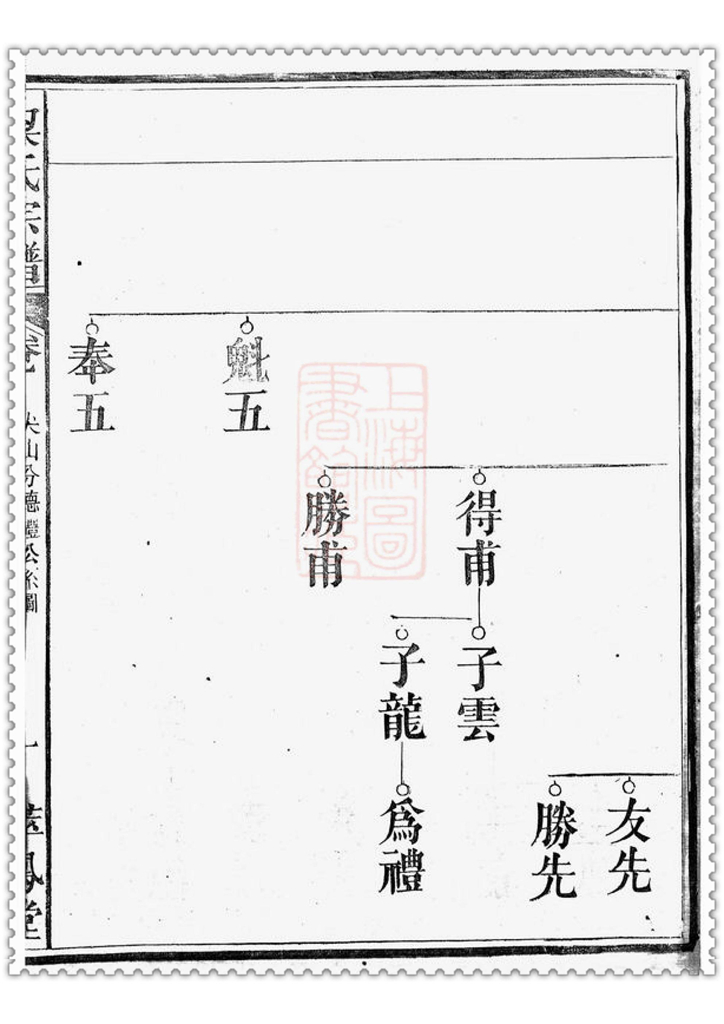 友先
勝先
得甫
子雲
子龍
為禮
勝甫
魁五
奉五
氏宗譜
卷
尖山分德禮公系圖
一
鳳堂
上海圖
書館藏